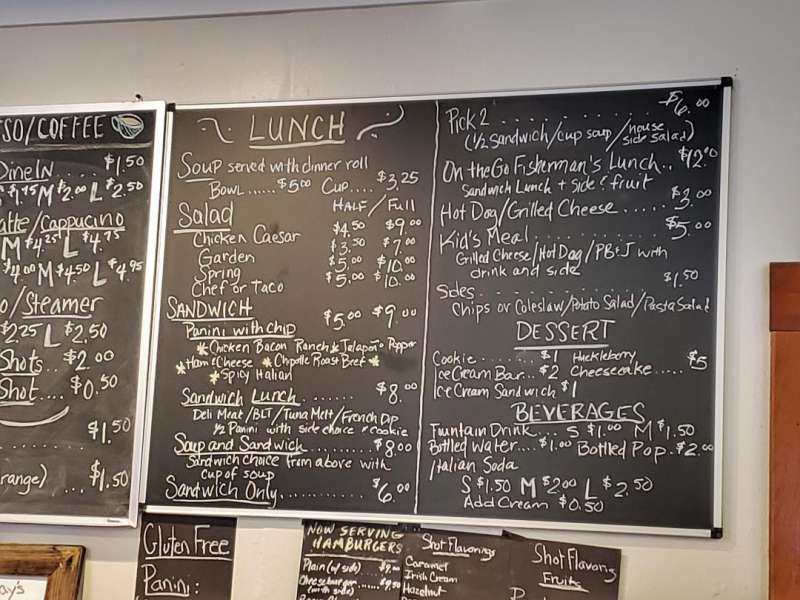 SO/COFFEE
Dine In .... $1.50
$1.75 M $2.00 L $2.50
atte/Cappucino
M $4.25 L $4.75
$4.00 M $4.50 L $4.95
o/Steamer
2.25 L $2.50
Shots.. $2.00
Shot.... $0.50
$1.50
range) .... $1.50
LUNCH
Soup served with dinner roll
Bowl...... $5.00 Cup.... $3.25
Salad HALF/Full
Chicken Caesar $4.50 $9.00
Garden $3.50 $7.00
Spring $5.00 $10.00
Chef or Taco $5.00 $10.00
SANDWICH $5.00 $9.00
Panini with chip
*Chicken Bacon Ranch *Jalapeno Popper
*Ham & Cheese *Chipotle Roast Beef *
*Spicy Italian
Sandwich Lunch........ $8.00
Deli Meat/BLT/Tuna Melt/French Dip
1/2 Panini with side choice & cookie
Soup and Sandwich........ $8.00
Sandwich choice from above with
cup of soup
Sandwich Only........... $6.00
Pick 2 ............ $6.00
(1/2 sandwich/cup soup/house side salad)
On the Go Fisherman's Lunch.. $12.00
Sandwich Lunch + Side & fruit
Hot Dog/Grilled Cheese...... $3.00
Kid's Meal ............ $5.00
Grilled Cheese/Hot Dog/PB&J with
drink and side
Sides................ $1.50
Chips or Coleslaw/Potato Salad/Pasta Salad
DESSERT
Cookie........ $1 Huckleberry
Ice Cream Bar... $2 Cheesecake..... $5
Ice Cream Sandwich $1
BEVERAGES
Fountain Drink... S $1.00 M $1.50
Bottled Water.... $1.00 Bottled Pop. $2.00
Italian Soda
S $1.50 M $2.00 L $2.50
Add Cream $0.50
Gluten Free
Panini:
NOW SERVING
HAMBURGERS
Plain (w/ side) $9.00
Cheeseburger .... $9.50
(with side)
Shot Flavorings
Caramel
Irish Cream
Hazelnut
Shot Flavoring
Fruits
ay's